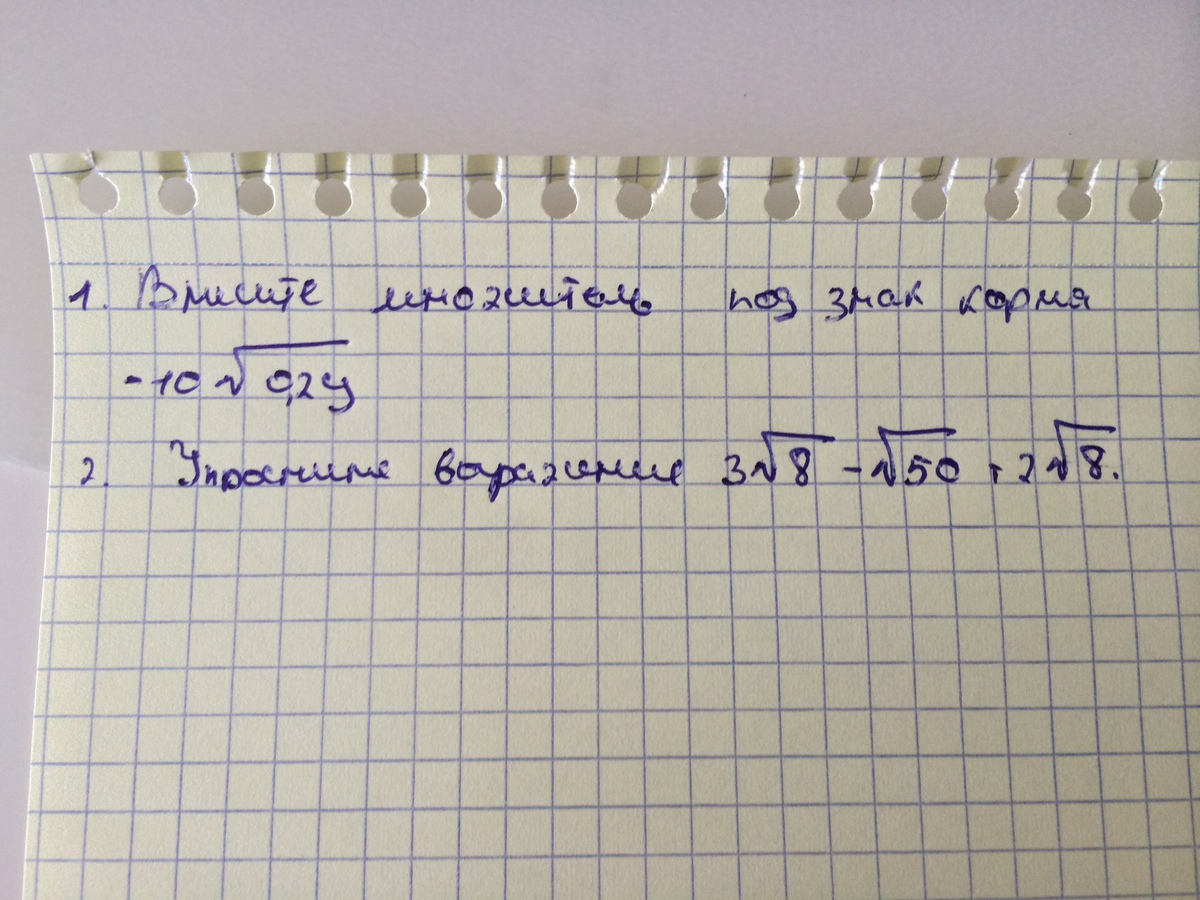 1. Вносите множитель под знак корня
-10√0,2y
2. Упростите выражение 3√8 - √50 + 2√8.